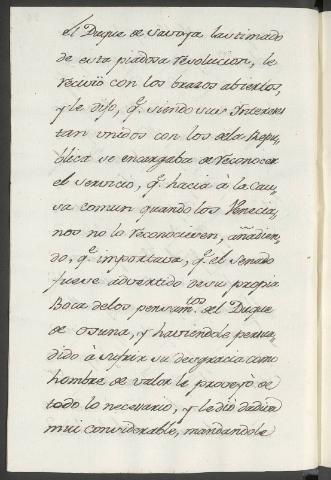 el Duque de Savoya lastimado
de esta piadosa resolucion, le
recivió con los brazos abiertos,
y le dijo, q.e siendo sus Interes
tan unidos con los de la Repu,,
blica se encargaba de reconocer
el servicio, q.e hacia à la Cau,,
sa comun quando los Venecia,,
nos no lo reconociesen, añadien,,
do, q.e importava, q.e el Senado
fuese advertido de su propia
Boca de los pensam.tos del Duque
de Osuna, y haviendole persua,,
dido à sufrir su desgracia como
hombre de valor le proveyó de
todo lo necesario, y le dió dadiva
mui considerable, mandandole